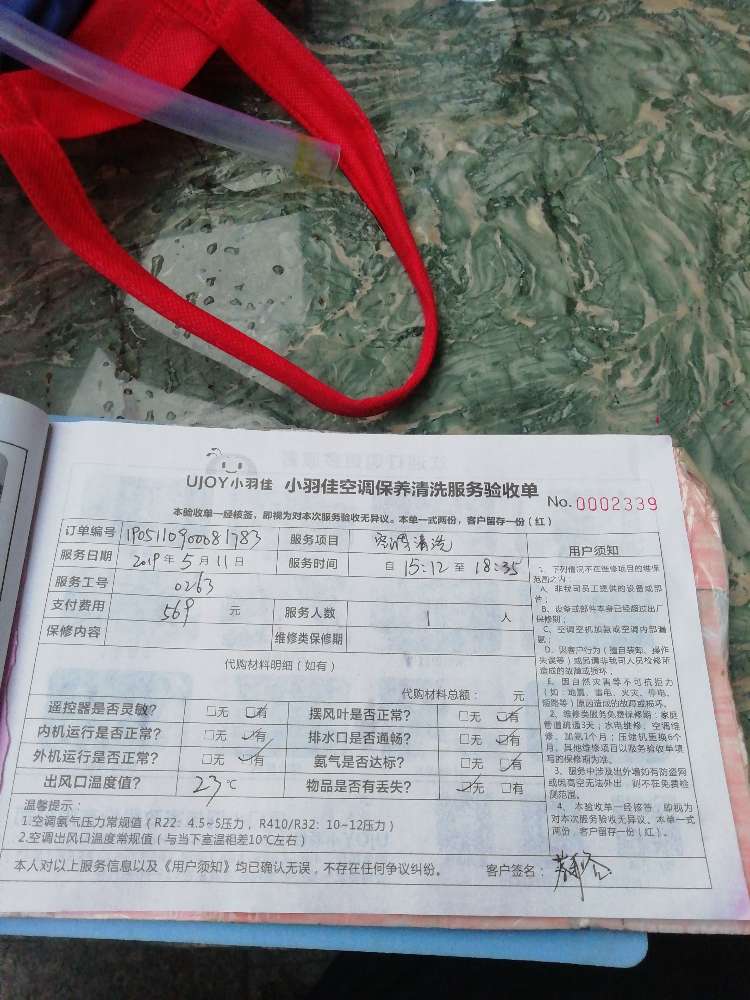 UJOY小羽佳 小羽佳空调保养清洗服务验收单 No. 0002339
本验收单一经核签，即视为对本次服务验收无异议。本单一式两份，客户留存一份（红）
订单编号 190511090008 1783 服务项目 空调清洗
服务日期 2019年5月11日 服务时间 自 15:12 至 18:35
服务工号 0263
支付费用 569 元 服务人数 1 人
保修内容 维修类保修期
代购材料明细（如有）
代购材料总额： 元
遥控器是否灵敏？ □无 ☑有 摆风叶是否正常？ □无 ☑有
内机运行是否正常？ □无 ☑有 排水口是否通畅？ □无 ☑有
外机运行是否正常？ □无 ☑有 氨气是否达标？ □无 ☑有
出风口温度值？ 23℃ 物品是否有丢失？ ☑无 □有
温馨提示：
1.空调氨气压力常规值（R22：4.5~5压力，R410/R32：10~12压力）
2.空调出风口温度常规值（与当下室温相差10℃左右）
本人对以上服务信息以及《用户须知》均已确认无误，不存在任何争议纠纷。 客户签名：
用户须知
1、下列情况不在维修项目的维保
范围之内：
A、非我司员工提供的设备或部
件；
B、设备或部件本身已经超过出厂
保修期；
C、空调空机加氨或空调内部漏
氨；
D、因客户行为（擅自装卸、操作
失误等）或因请非我司人员检修所
造成的故障或损坏；
E、因自然灾害等不可抗拒力
（如：地震、雷电、火灾、停电、
短路等）原因造成的故障或损坏。
2、维修类服务免费保修期：家庭
管道疏通3天；水电维修、空调维
修、加氨1个月；压缩机更换6个
月。其他维修项目以服务验收单填
写的保修期为准。
3、服务中涉及出外墙如有防盗网
或因高空无法外出，则不在免费检
测范围。
4、本验收单一经核签，即视为
对本次服务验收无异议。本单一式
两份，客户留存一份（红）。